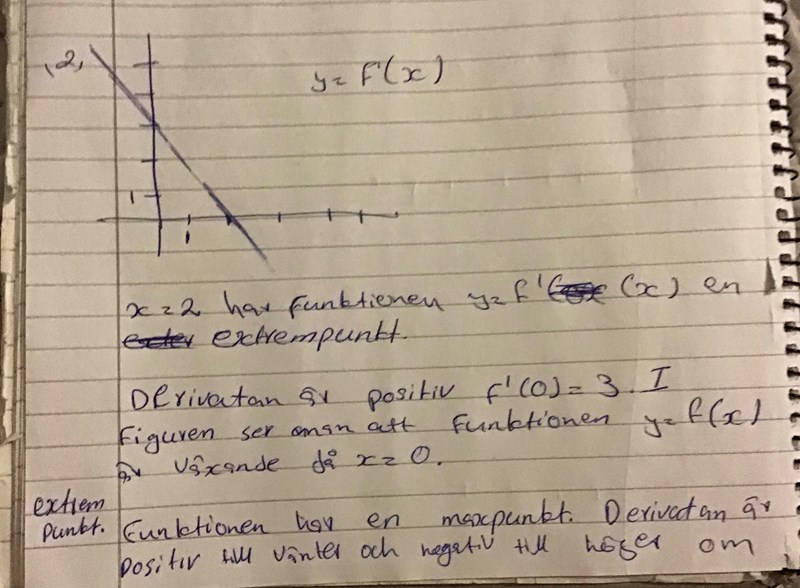 ,2,
y = f'(x)
1
1
x=2 har funktionen y=f' (x) en
extrempunkt.
Derivatan är positiv f'(0)=3. I
figuren ser man att funktionen y=f(x)
är växande då x=0.
extrem
punkt.
Funktionen har en maxpunkt. Derivatan är
positiv till vänter och negativ till höger om